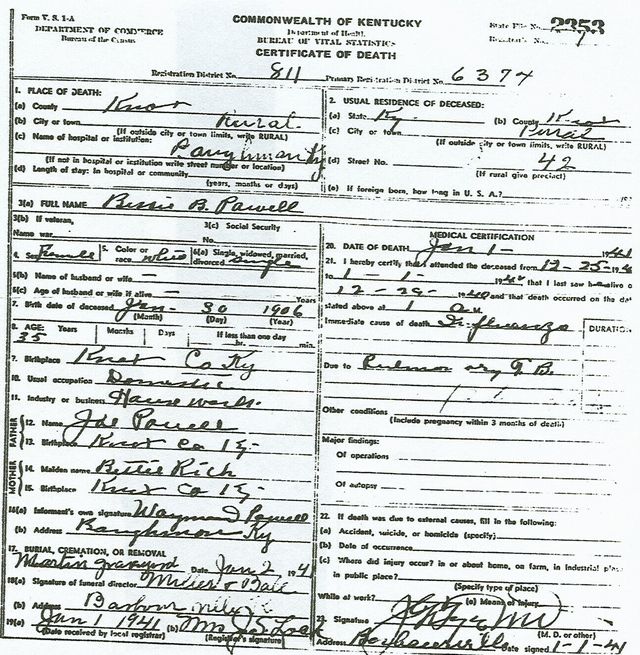 Form V. S. 1-A
DEPARTMENT OF COMMERCE
Bureau of the Census
COMMONWEALTH OF KENTUCKY
Department of Health
BUREAU OF VITAL STATISTICS
CERTIFICATE OF DEATH
State File No. 2353
Registrar's No. 7
Registration District No. 811 Primary Registration District No. 6374
1. PLACE OF DEATH:
(a) County Knox
(b) City or town Rural
(If outside city or town limits, write RURAL)
(c) Name of hospital or institution:
Baughman Ky
(If not in hospital or institution write street number or location)
(d) Length of stay: In hospital or community
(years, months or days)
2. USUAL RESIDENCE OF DECEASED:
(a) State Ky (b) County Knox
(c) City or town Rural
(If outside city or town limits, write RURAL)
(d) Street No. 42
(If rural give precinct)
(e) If foreign born, how long in U. S. A.?
3(a) FULL NAME Bessie B. Powell
3(b) If veteran, 3(c) Social Security
Name war No.
4. Sex Female 5. Color or race white 6(a) Single, widowed, married, divorced Single
6(b) Name of husband or wife
6(c) Age of husband or wife if alive Years
7. Birth date of deceased Jan 30 1906
(Month) (Day) (Year)
8. AGE: Years Months Days If less than one day
35 hr. min.
9. Birthplace Knox Co Ky
10. Usual occupation Domestic
11. Industry or business House work
FATHER
12. Name Joe Powell
13. Birthplace Knox Co Ky
MOTHER
14. Maiden name Bettie Rich
15. Birthplace Knox Co Ky
16(a) Informant's own signature Waymond Powell
(b) Address Baughman Ky
17. BURIAL, CREMATION, OR REMOVAL
Martin graveyard Date Jan 2 1941
18(a) Signature of funeral director Miller & Hall
(b) Address Barbourville Ky
19(a) Jan 1 1941 (b) Mrs
(Date received by local registrar) (Registrar's signature)
MEDICAL CERTIFICATION
20. DATE OF DEATH Jan 1 - 1941
21. I hereby certify that I attended the deceased from 12-25-
to 1-1- that I last saw alive on
12-29-1940 and that death occurred on the date
stated above at 1 a M.
Immediate cause of death Influenza
DURATION
Due to Pulmonary T.B.
Other conditions
(Include pregnancy within 3 months of death)
Major findings:
Of operations
Of autopsy
22. If death was due to external causes, fill in the following:
(a) Accident, suicide, or homicide (specify)
(b) Date of occurrence
(c) Where did injury occur? in or about home, on farm, in industrial place,
in public place?
(Specify type of place)
While at work? (e) Means of injury
23. Signature
(M. D. or other)
Address Barbourville Date signed 1-1-41